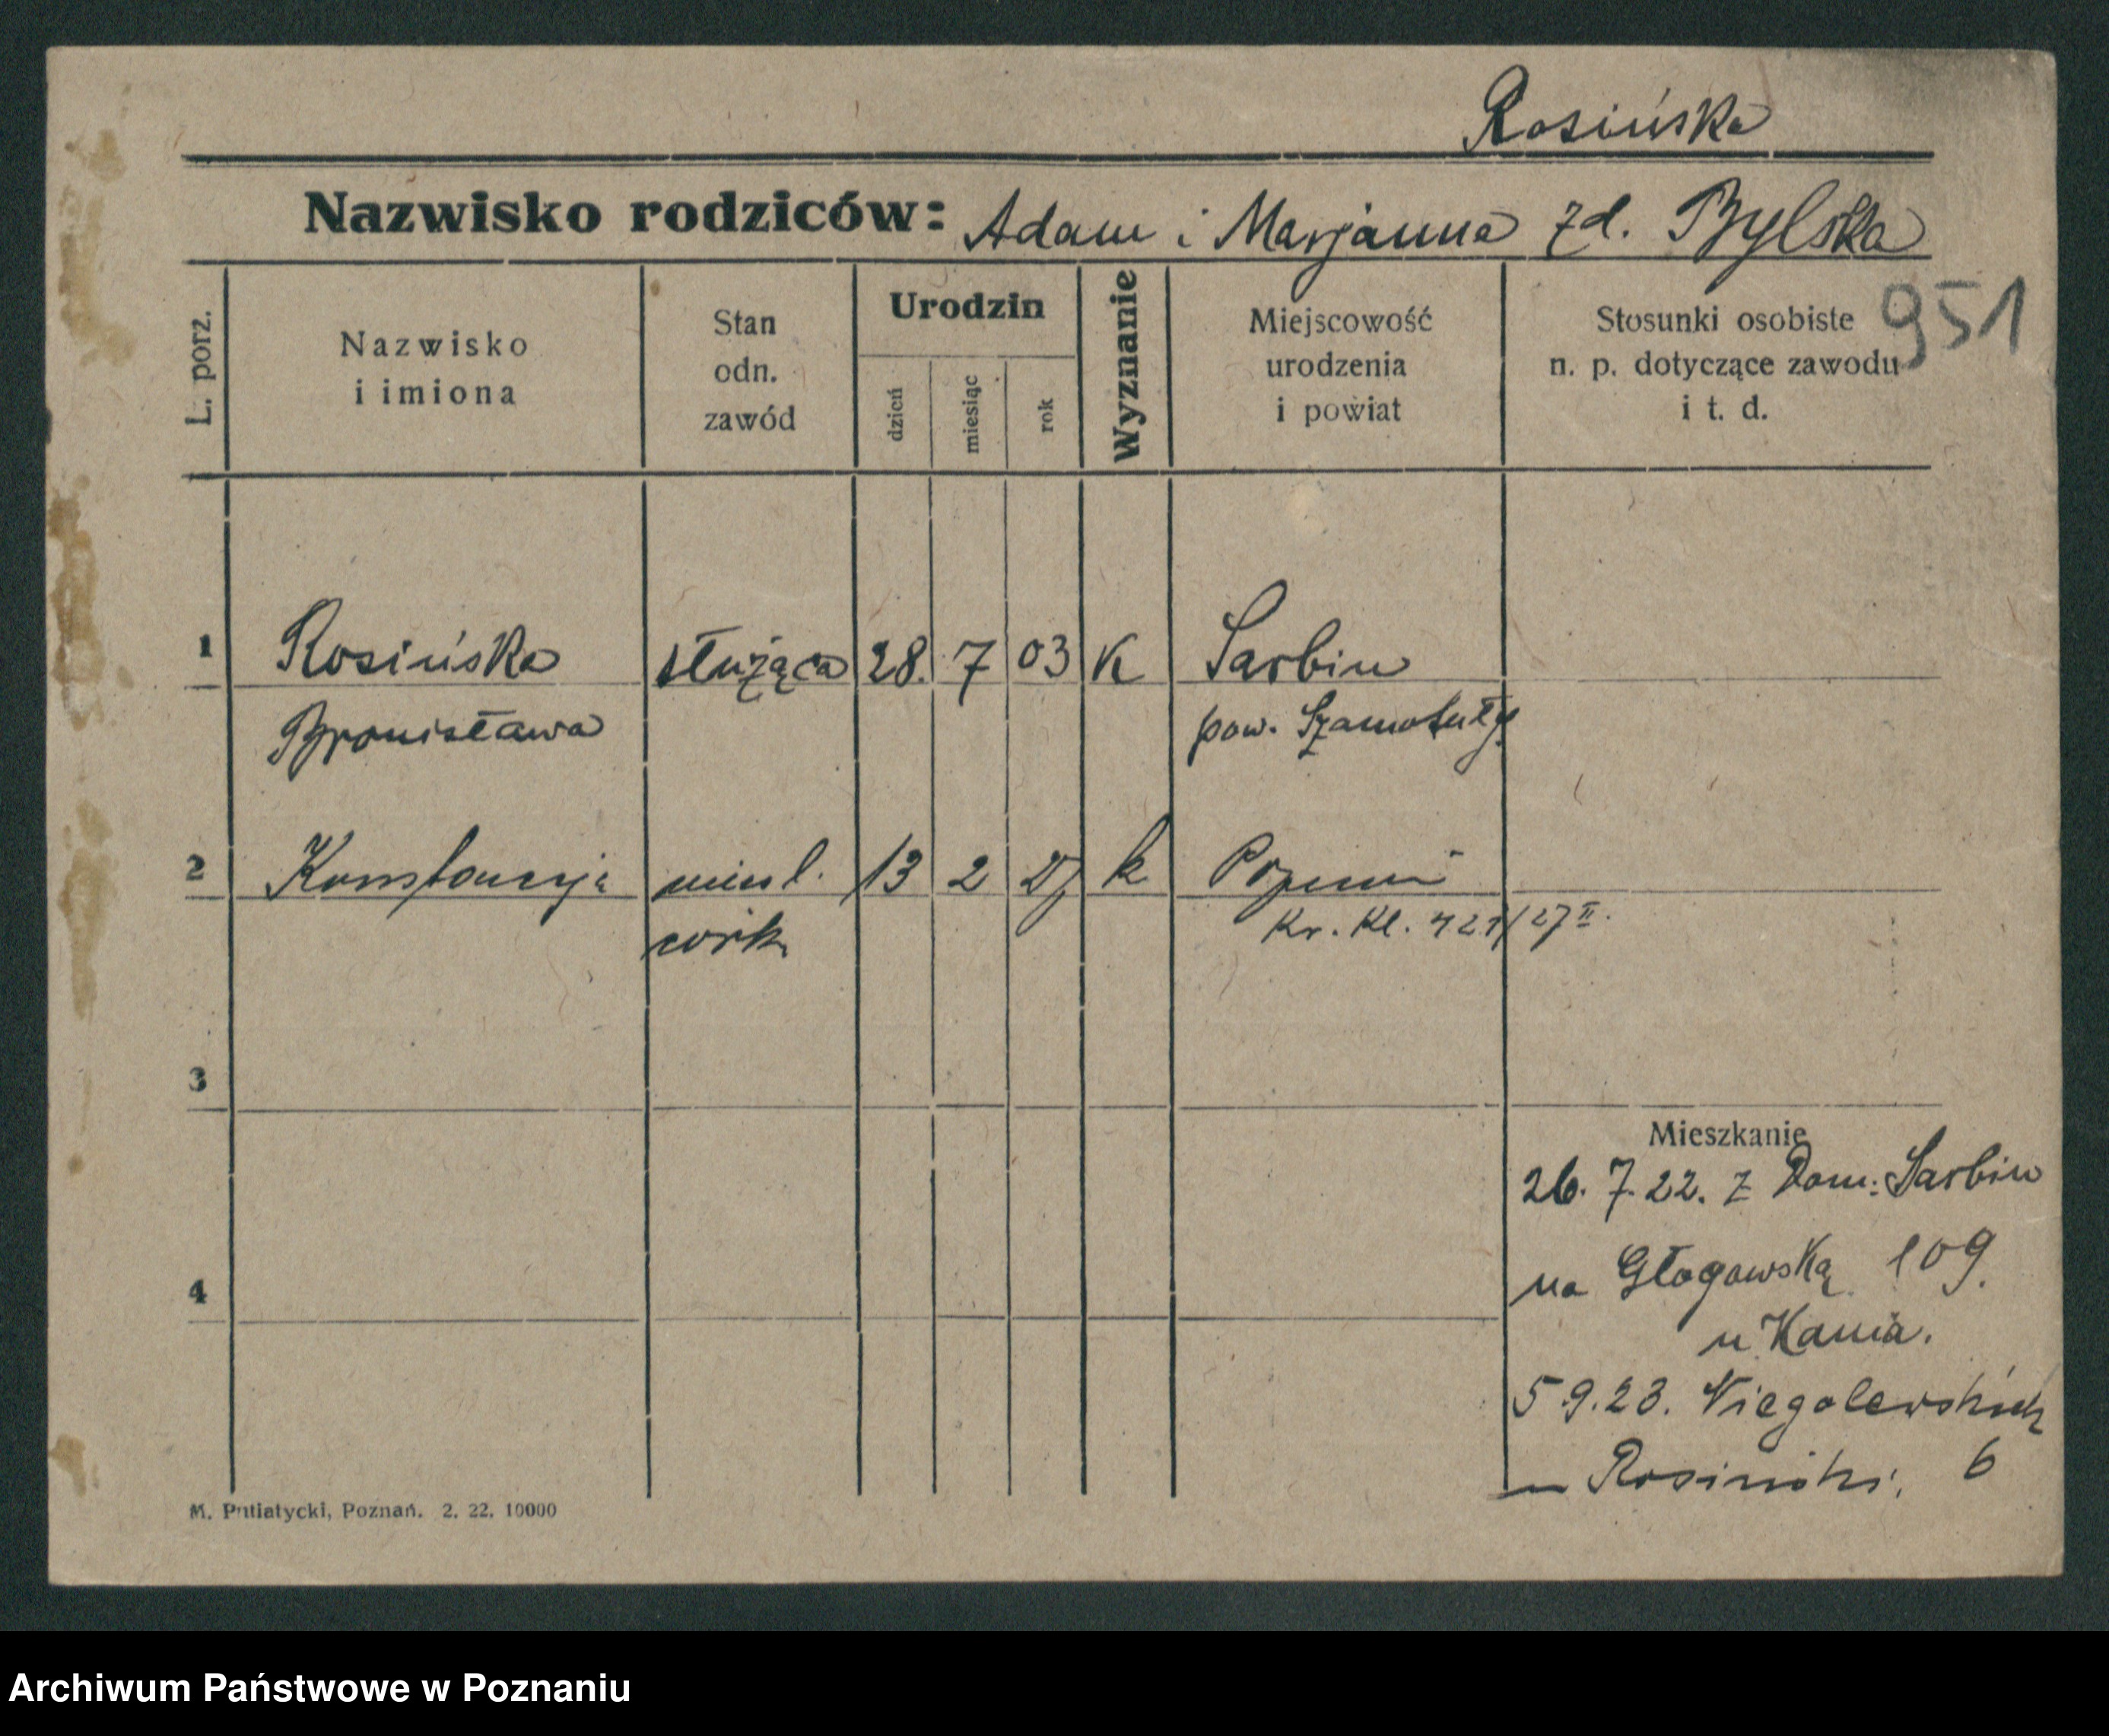 Rosińska
Nazwisko rodziców: Adam i Marjanna zd. Bylska
951
L. porz.
Nazwisko
i imiona
Stan
odn.
zawód
Urodzin
dzień
miesiąc
rok
Wyznanie
Miejscowość
urodzenia
i powiat
Stosunki osobiste
n. p. dotyczące zawodu
i t. d.
1 Rosińska służąca 28. 7 03 K Sarbin
Bronisława pow. Szamotuły
2 Konstancyja 13 2 27 k Poznań
córk. Kr. Kl. 421/27 II.
3
Mieszkanie
26. 7. 22. z Dom. Sarbin
4
na Głogowską 109.
u Kania.
5 9. 23. Niegolewskich
u Rosiński, 6
M. Putiatycki, Poznań. 2. 22. 10000
Archiwum Państwowe w Poznaniu